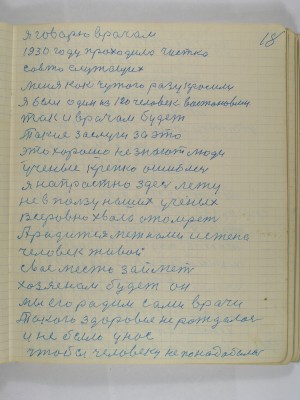 18
я говарю врачам
1930 году праходила чистка
савто служащих
меня как чужого разу бросили
Я был один из 180 человек востоновлен
так и врачам будет
Такие заслуги за это
это хорошо не знают люди
ученые крепко ошиблись
я напрастно здесь лежу
не в ползу наших ученых
всеровно хвала отомрет
А радится меж нами истено
человек живой
свае месть займет
хозяенам будет он
мы его радим сами врачи
Такого здоровие не рождалось
и не было у нас
чтобы человеку не понадобилос